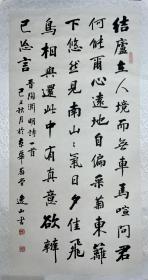 結廬在人境而無車馬喧問君
何能爾心遠地自偏采菊東籬
下悠然見南山〻氣日夕佳飛
鳥相與還此中有真意欲辨
已忘言
晉陶淵明詩一首
己丑秋月於京華 逸山書